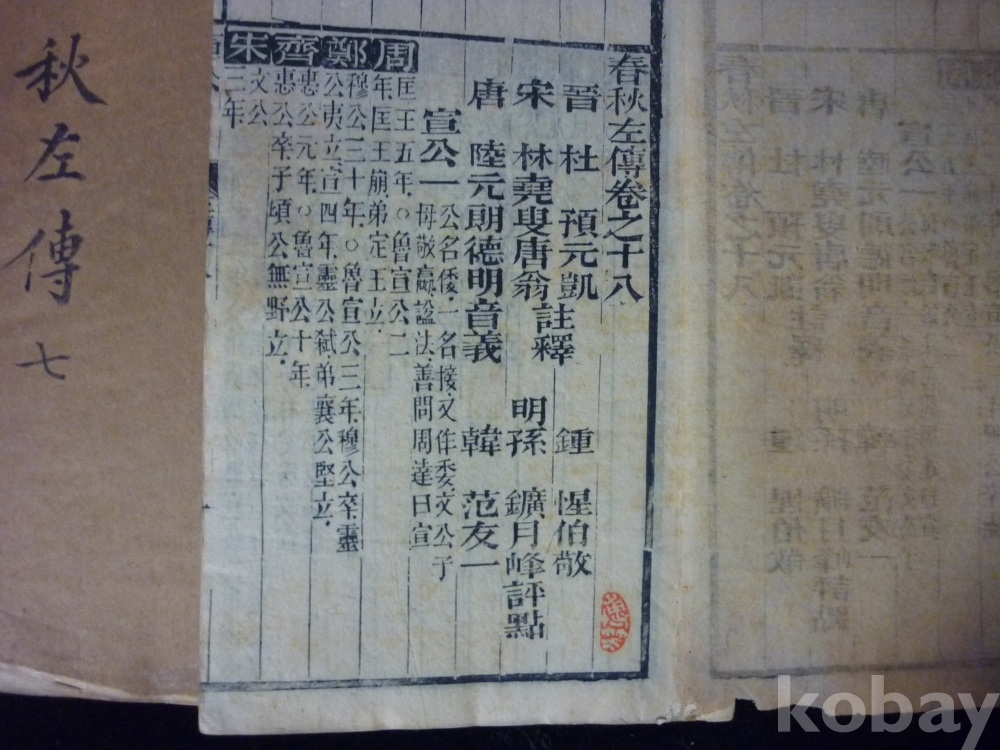 春秋左傳卷之十八
晉 杜 預元凱 註釋 鍾 惺伯敬
宋 林堯叟唐翁 明孫 鑛月峰評點
唐 陸元朗德明音義 韓 范友一
宣公一
公名倭一名接又作委文公子
母敬嬴諡法善問周達曰宣
周
匡王五年○魯宣公二
年匡王崩弟定王立
鄭
穆公三十年○魯宣公三年穆公卒靈
公夷立宣四年靈公弒弟襄公堅立
齊
惠公元年○魯宣公十年
惠公卒子頃公無野立
宋
文公
三年
秋左傳 七
kobay